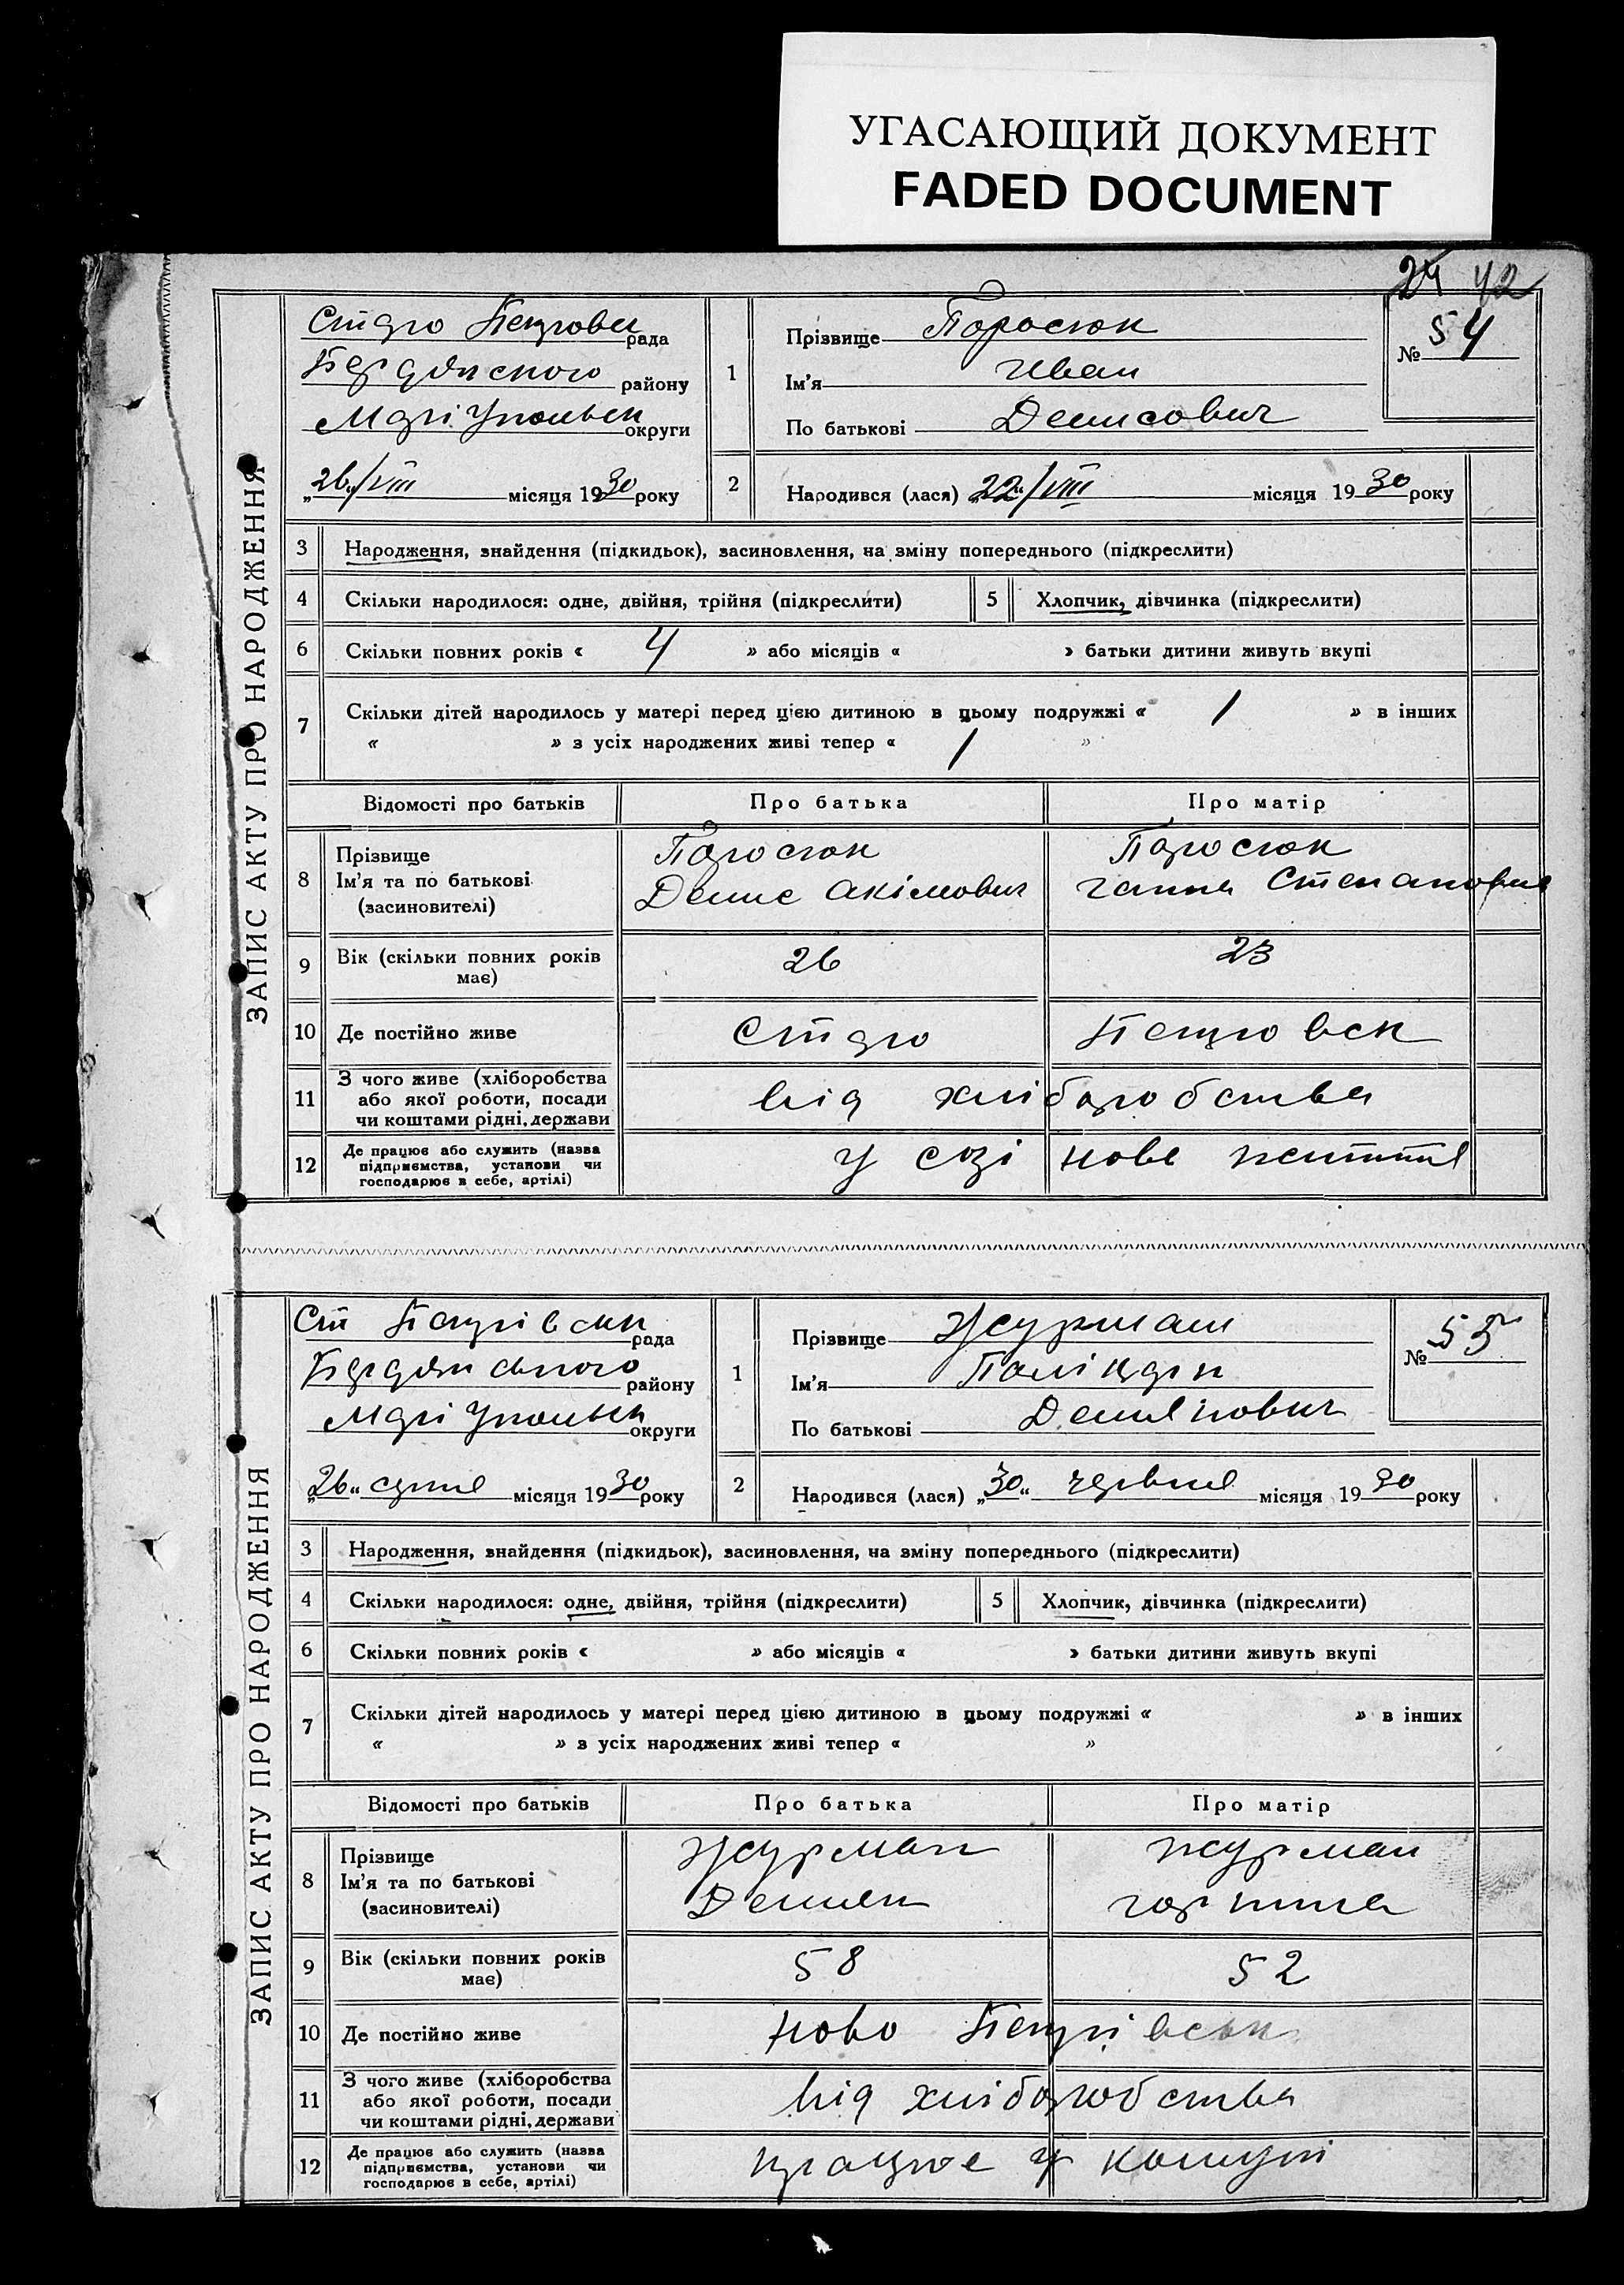 УГАСАЮЩИЙ ДОКУМЕНТ
FADED DOCUMENT
24 42
ЗАПИС АКТУ ПРО НАРОДЖЕННЯ
Старо Петровск рада
Бердянского району
Маріупольськ округи
„26“/VIII місяця 1930 року
1
Прізвище Поросюк
Ім'я Иван
По батькові Денисович
№ 54
2
Народився (лася) „22“/VIII місяця 1930 року
3 Народження, знайдення (підкидьок), засиновлення, на зміну попереднього (підкреслити)
4 Скільки народилося: одне, двійня, трійня (підкреслити)
5 Хлопчик, дівчинка (підкреслити)
6 Скільки повних років « 4 » або місяців « » батьки дитини живуть вкупі
7 Скільки дітей народилось у матері перед цією дитиною в цьому подружжі « 1 » в інших
« » з усіх народжених живі тепер « 1 »
Відомості про батьків Про батька Про матір
8 Прізвище
Ім'я та по батькові
(засиновителі)
Поросюк
Денис Акімович
Поросюк
Ганна Степановна
9 Вік (скільки повних років
має)
26 23
10 Де постійно живе Старо Петровск
11 З чого живе (хліборобства
або якої роботи, посади
чи коштами рідні, держави
від хліборобства
12 Де працює або служить (назва
підприємства, установи чи
господарює в себе, артілі)
у созі нове життя
ЗАПИС АКТУ ПРО НАРОДЖЕННЯ
Ст Петрівськ рада
Бердянського району
Маріупольськ округи
„26“ серпня місяця 1930 року
1
Прізвище Журман
Ім'я
По батькові Демянович
№ 55
2
Народився (лася) „30“ червня місяця 1930 року
3 Народження, знайдення (підкидьок), засиновлення, на зміну попереднього (підкреслити)
4 Скільки народилося: одне, двійня, трійня (підкреслити)
5 Хлопчик, дівчинка (підкреслити)
6 Скільки повних років « » або місяців « » батьки дитини живуть вкупі
7 Скільки дітей народилось у матері перед цією дитиною в цьому подружжі « » в інших
« » з усіх народжених живі тепер « »
Відомості про батьків Про батька Про матір
8 Прізвище
Ім'я та по батькові
(засиновителі)
Журман
Демян
Журман
Горпина
9 Вік (скільки повних років
має)
58 52
10 Де постійно живе Ново Петрівськ
11 З чого живе (хліборобства
або якої роботи, посади
чи коштами рідні, держави
від хліборобства
12 Де працює або служить (назва
підприємства, установи чи
господарює в себе, артілі)
працює у комуні